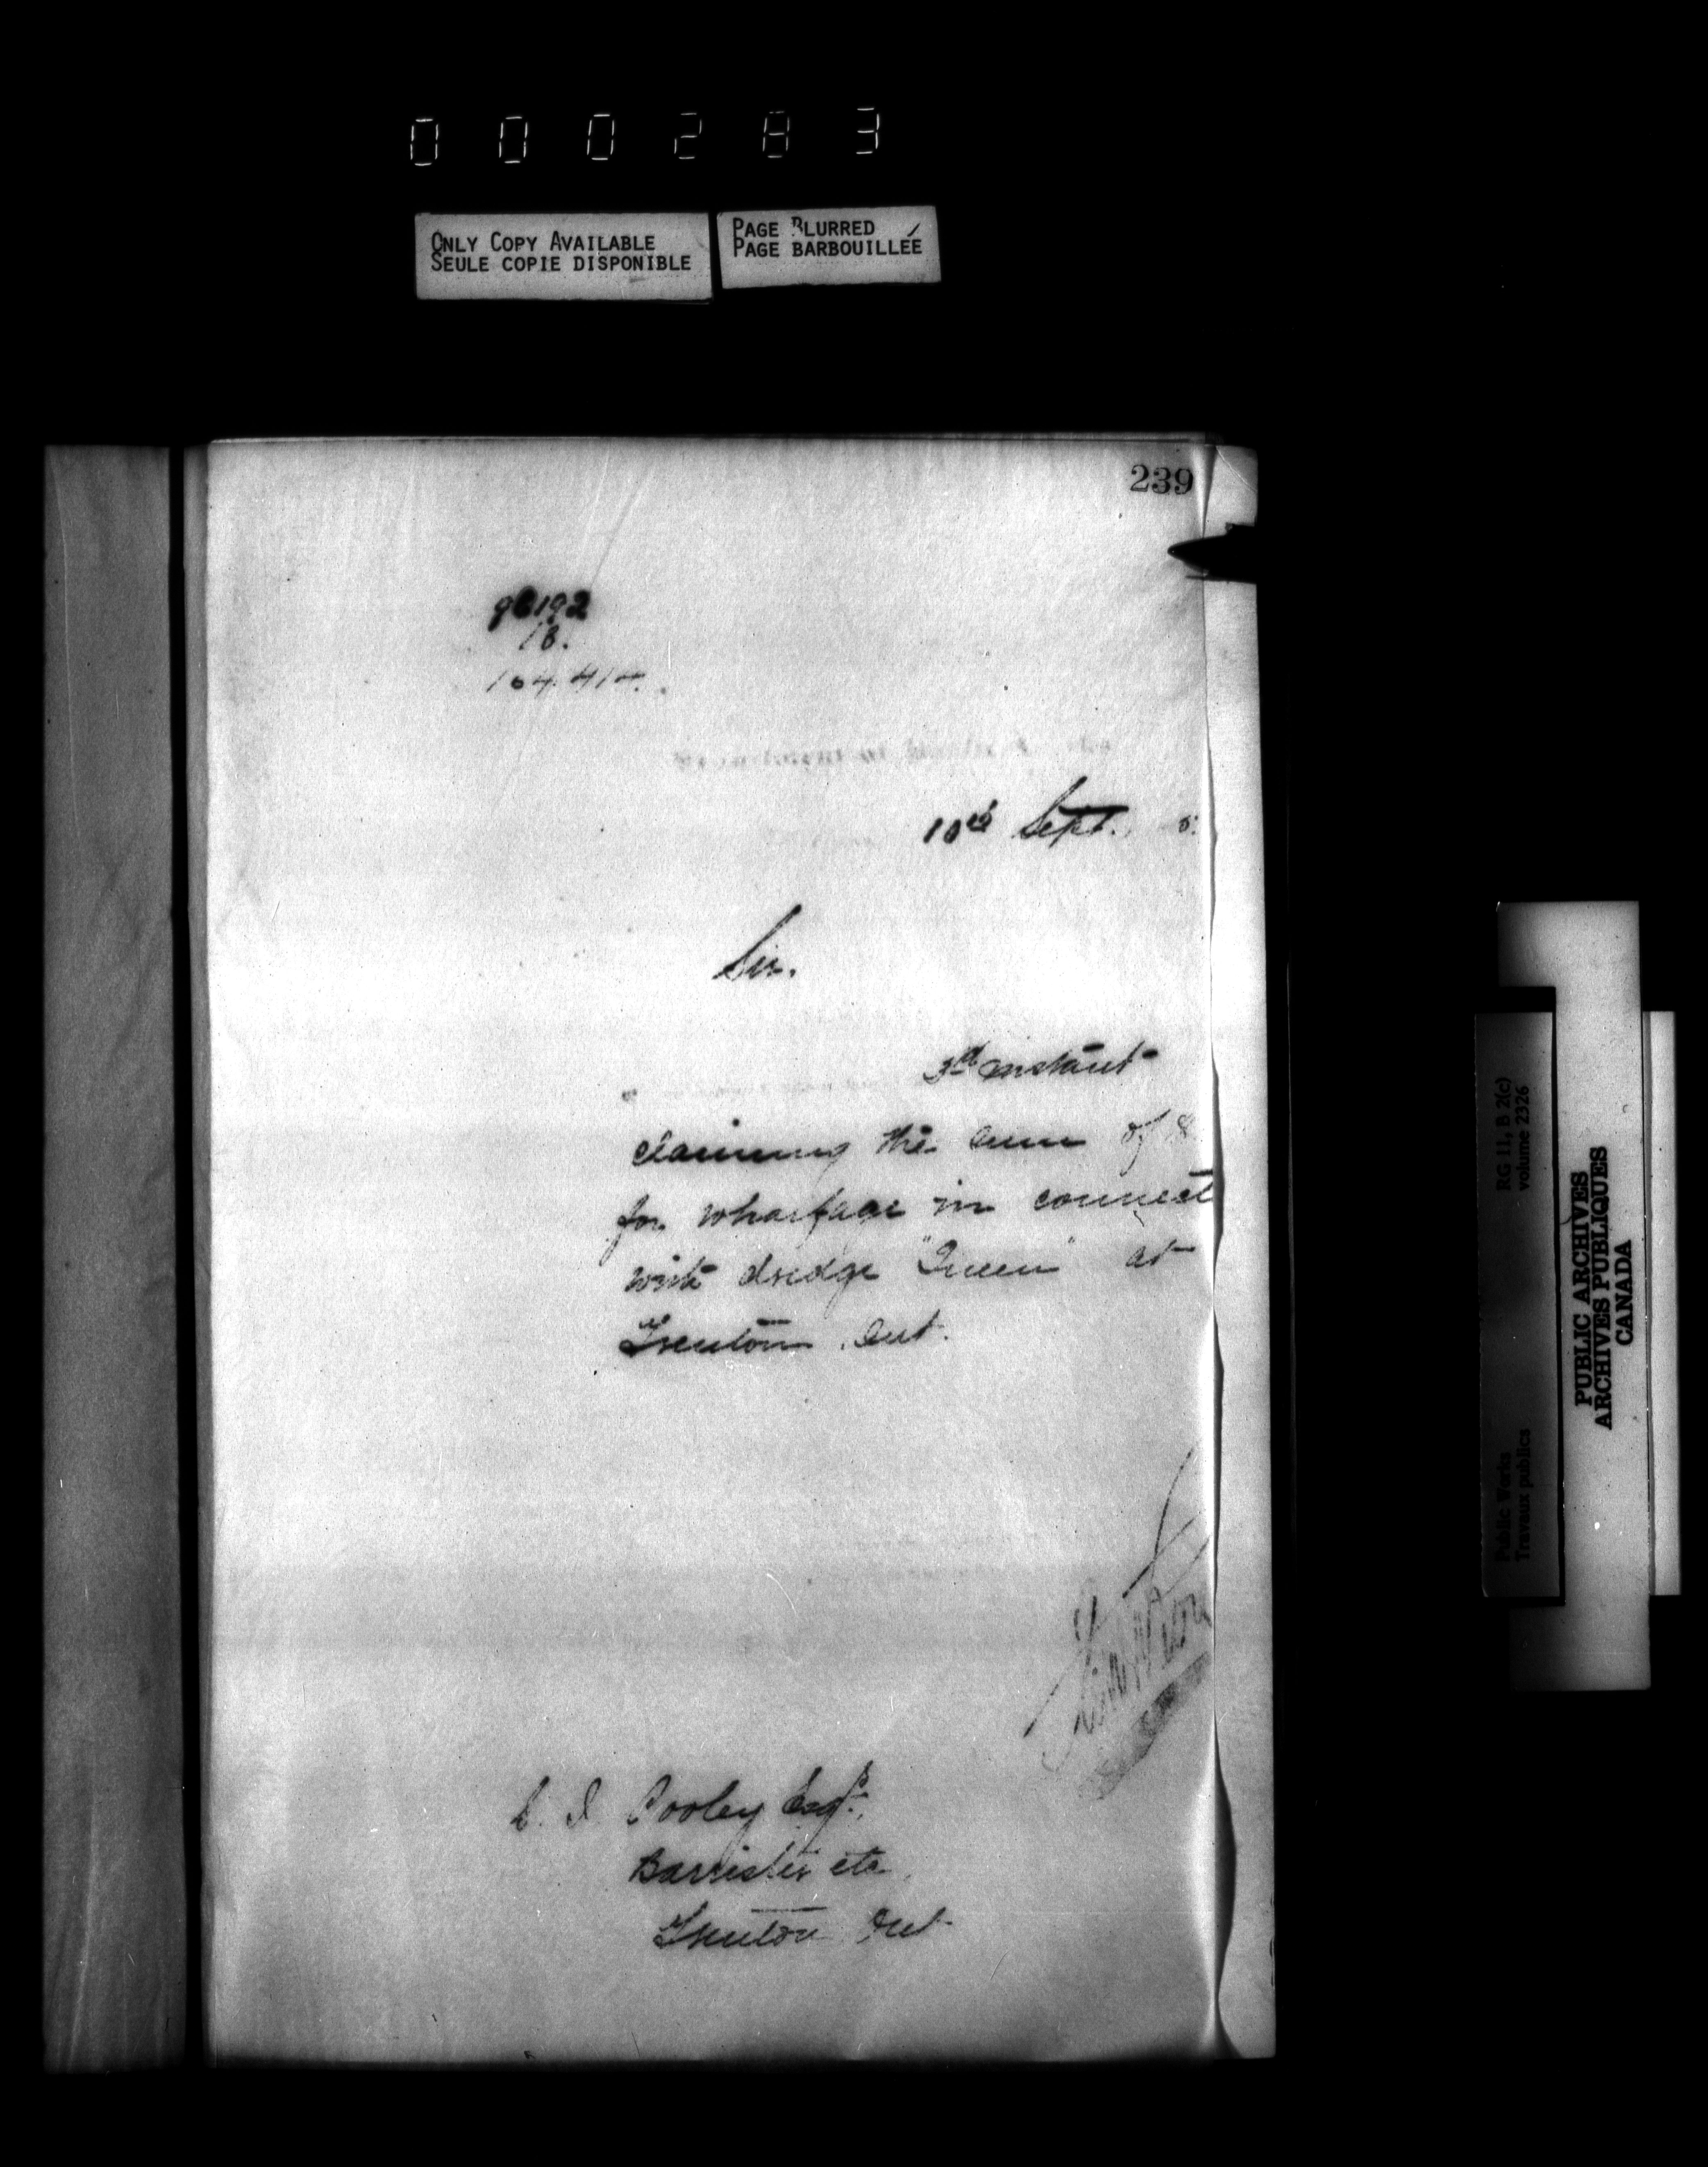 000283
ONLY COPY AVAILABLE
SEULE COPIE DISPONIBLE
PAGE BLURRED
PAGE BARBOUILLÉE
239
18.
10th Sept.
Sir.
3rd instant
claiming the sum of $
for wharfage in connect
with dredge "Queen" at
Trenton Ont.
Cooley Esq.,
Barrister etc
Trenton Ont
RG 11, B 2(c)
volume 2326
Public Works
Travaux publics
PUBLIC ARCHIVES
ARCHIVES PUBLIQUES
CANADA